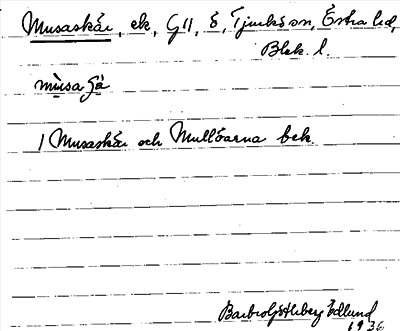 Musaskär, ek, G11, ö, Tjurkö sn, Östra hd,
Blek. l.
mùsa
1 Musaskär och Mullöarna bek.
Barbro Liljeberg Edlund
1936